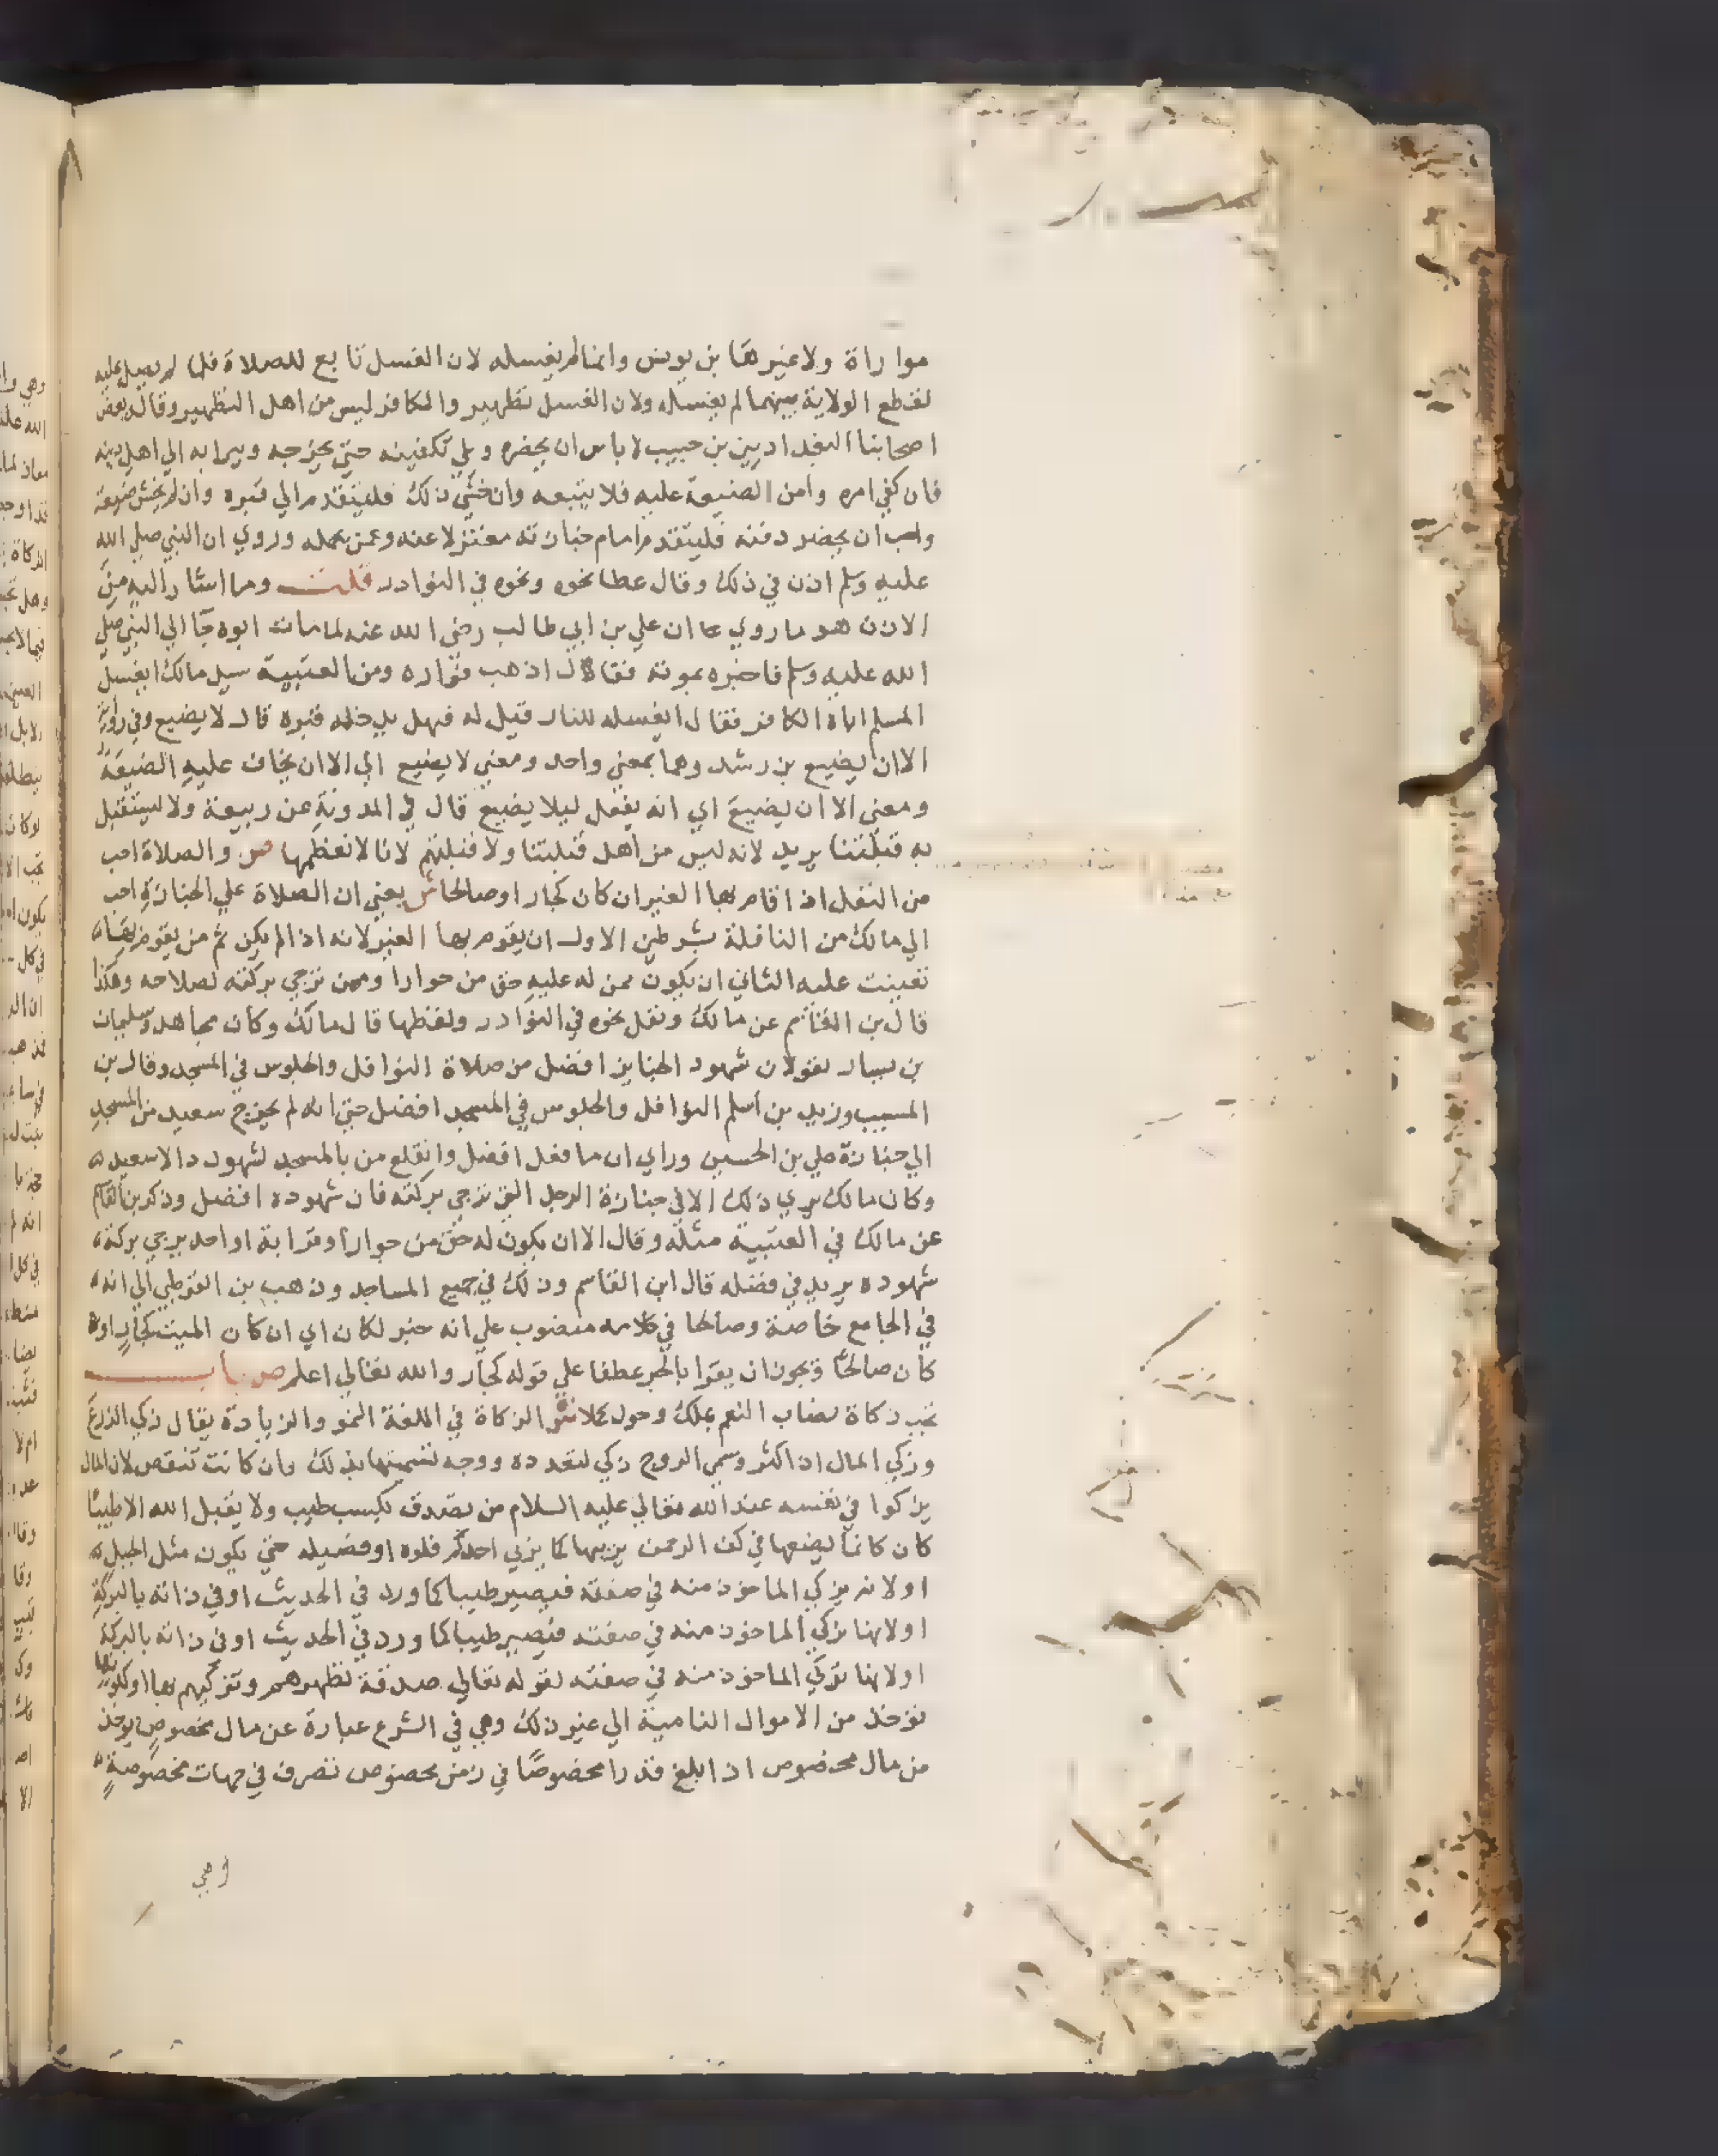 مواراة ولا غيرها بن يونس وانما لم يغسله لان الغسل تابع للصلاة فلما لم يصل عليه
لقطع الولاية بينهما لم يغسله ولان الغسل تطهير والكافر ليس من اهل التطهير وقال بعض
اصحابنا البغداديين بن حبيب لا باس ان يحضره ويلي تكفينه حتي يخرجه ويبرا به الي اهل دينه
فان كفي امره وامن الضيعة عليه فلا يتبعه وان خشي ذلك فليتقدم الي قبره وان لم يخش ضيعة
واحب ان يحضر دفنه فليتقدم امام جنازته معتزلا عنه وعمن يحمله وروي ان النبي صلي الله
عليه وسلم اذن في ذلك وقال عطا نحوه ونحوه في النوادر قلت وما اشار اليه من
الاذن هو ما روي ان علي بن ابي طالب رضي الله عنه لما مات ابوه جا الي النبي صلي
الله عليه وسلم فاخبره بموته فقال اذهب فواره ومن العتبية سيل مالك ايغسل
المسلم اباه الكافر فقال ايغسله للنار قيل له فهل يدخله قبره قال لا يضيع وفي رواية
الا ان يضيع بن رشد وهما بمعني واحد ومعني لا يضيع اي الا ان يخاف عليه الضيعة
ومعني الا ان يضيع اي انه يفعل ليلا يضيع قال في المدونة عن ربيعة ولا ليستقبل
به قبلتنا يريد لانه ليس من اهل قبلتنا ولا قبلتهم لانا لا نعظمها ص والصلاة احب
من النفل اذا قام بها الغير ان كان كجار او صالحا ش يعني ان الصلاة علي الجنازة احب
الي مالك من النافلة بشرطين الاول ان يقوم بها الغير لانه اذا لم يكن ثم من يقوم بها
تعينت عليه الثاني ان يكون ممن له عليه حق من جوار او ممن ترجي بركته لصلاحه وهكذا
قال بن القاسم عن مالك ونقل نحوه في النوادر ولفظها قال مالك وكان مجاهد وسليمان
بن يسار يقولان شهود الجنايز افضل من صلاة النوافل والجلوس في المسجد وقال بن
المسيب وزيد بن اسلم النوافل والجلوس في المسجد افضل حتي انه لم يخرج سعيد من المسجد
الي جنازة علي بن الحسين وراي ان ما فعل افضل وانقلع من بالمسجد لشهوده الا سعيد
وكان مالك يري ذلك الا في جنازة الرجل الذي ترجي بركته فان شهوده افضل وذكر بن القاسم
عن مالك في العتبية مثله وقال الا ان يكون له حق من جوار او قرابة او احد يرجي بركة
شهوده يريد في فضله قال ابن القاسم وذلك في جميع المساجد وذهب بن القرطبي الي انه
في الجامع خاصة وصالحا في كلامه منصوب علي انه خبر لكان اي ان كان الميت كجار او
كان صالحا ويجوز ان يقرا بالجر عطفا علي قوله كجار والله تعالي اعلم ص باب
تجب زكاة نصاب النعم بملك وحول كملا ش الزكاة في اللغة النمو والزيادة يقال زكي الزرع
وزكي المال اذا كثر وسمي الزوج زكي لتعدده ووجه تسميتها بذلك وان كانت تنقص لان المال
يزكوا في نفسه عند الله تعالي عليه السلام من تصدق بكسب طيب ولا يقبل الله الا طيبا
كان كانما يضعها في كف الرحمن يربيها كما يربي احدكم فلوه او فصيله حتي يكون مثل الجبل
او لانه يزكي الماخوذ منه في صفته فيصير طيبا كما ورد في الحديث او في ذاته بالبركة
او لانها تزكي الماخوذ منه في صفته فيصير طيبا كما ورد في الحديث او في ذاته بالبركة
او لانها تزكي الماخوذ منه في صفته لقوله تعالي صدقة تطهرهم وتزكيهم بها او لكونها
توخذ من الاموال النامية الي غير ذلك وهي في الشرع عبارة عن مال مخصوص يوخذ
من مال مخصوص اذا بلغ قدرا مخصوصا في زمن مخصوص تصرف في جهات مخصوصة
وهي